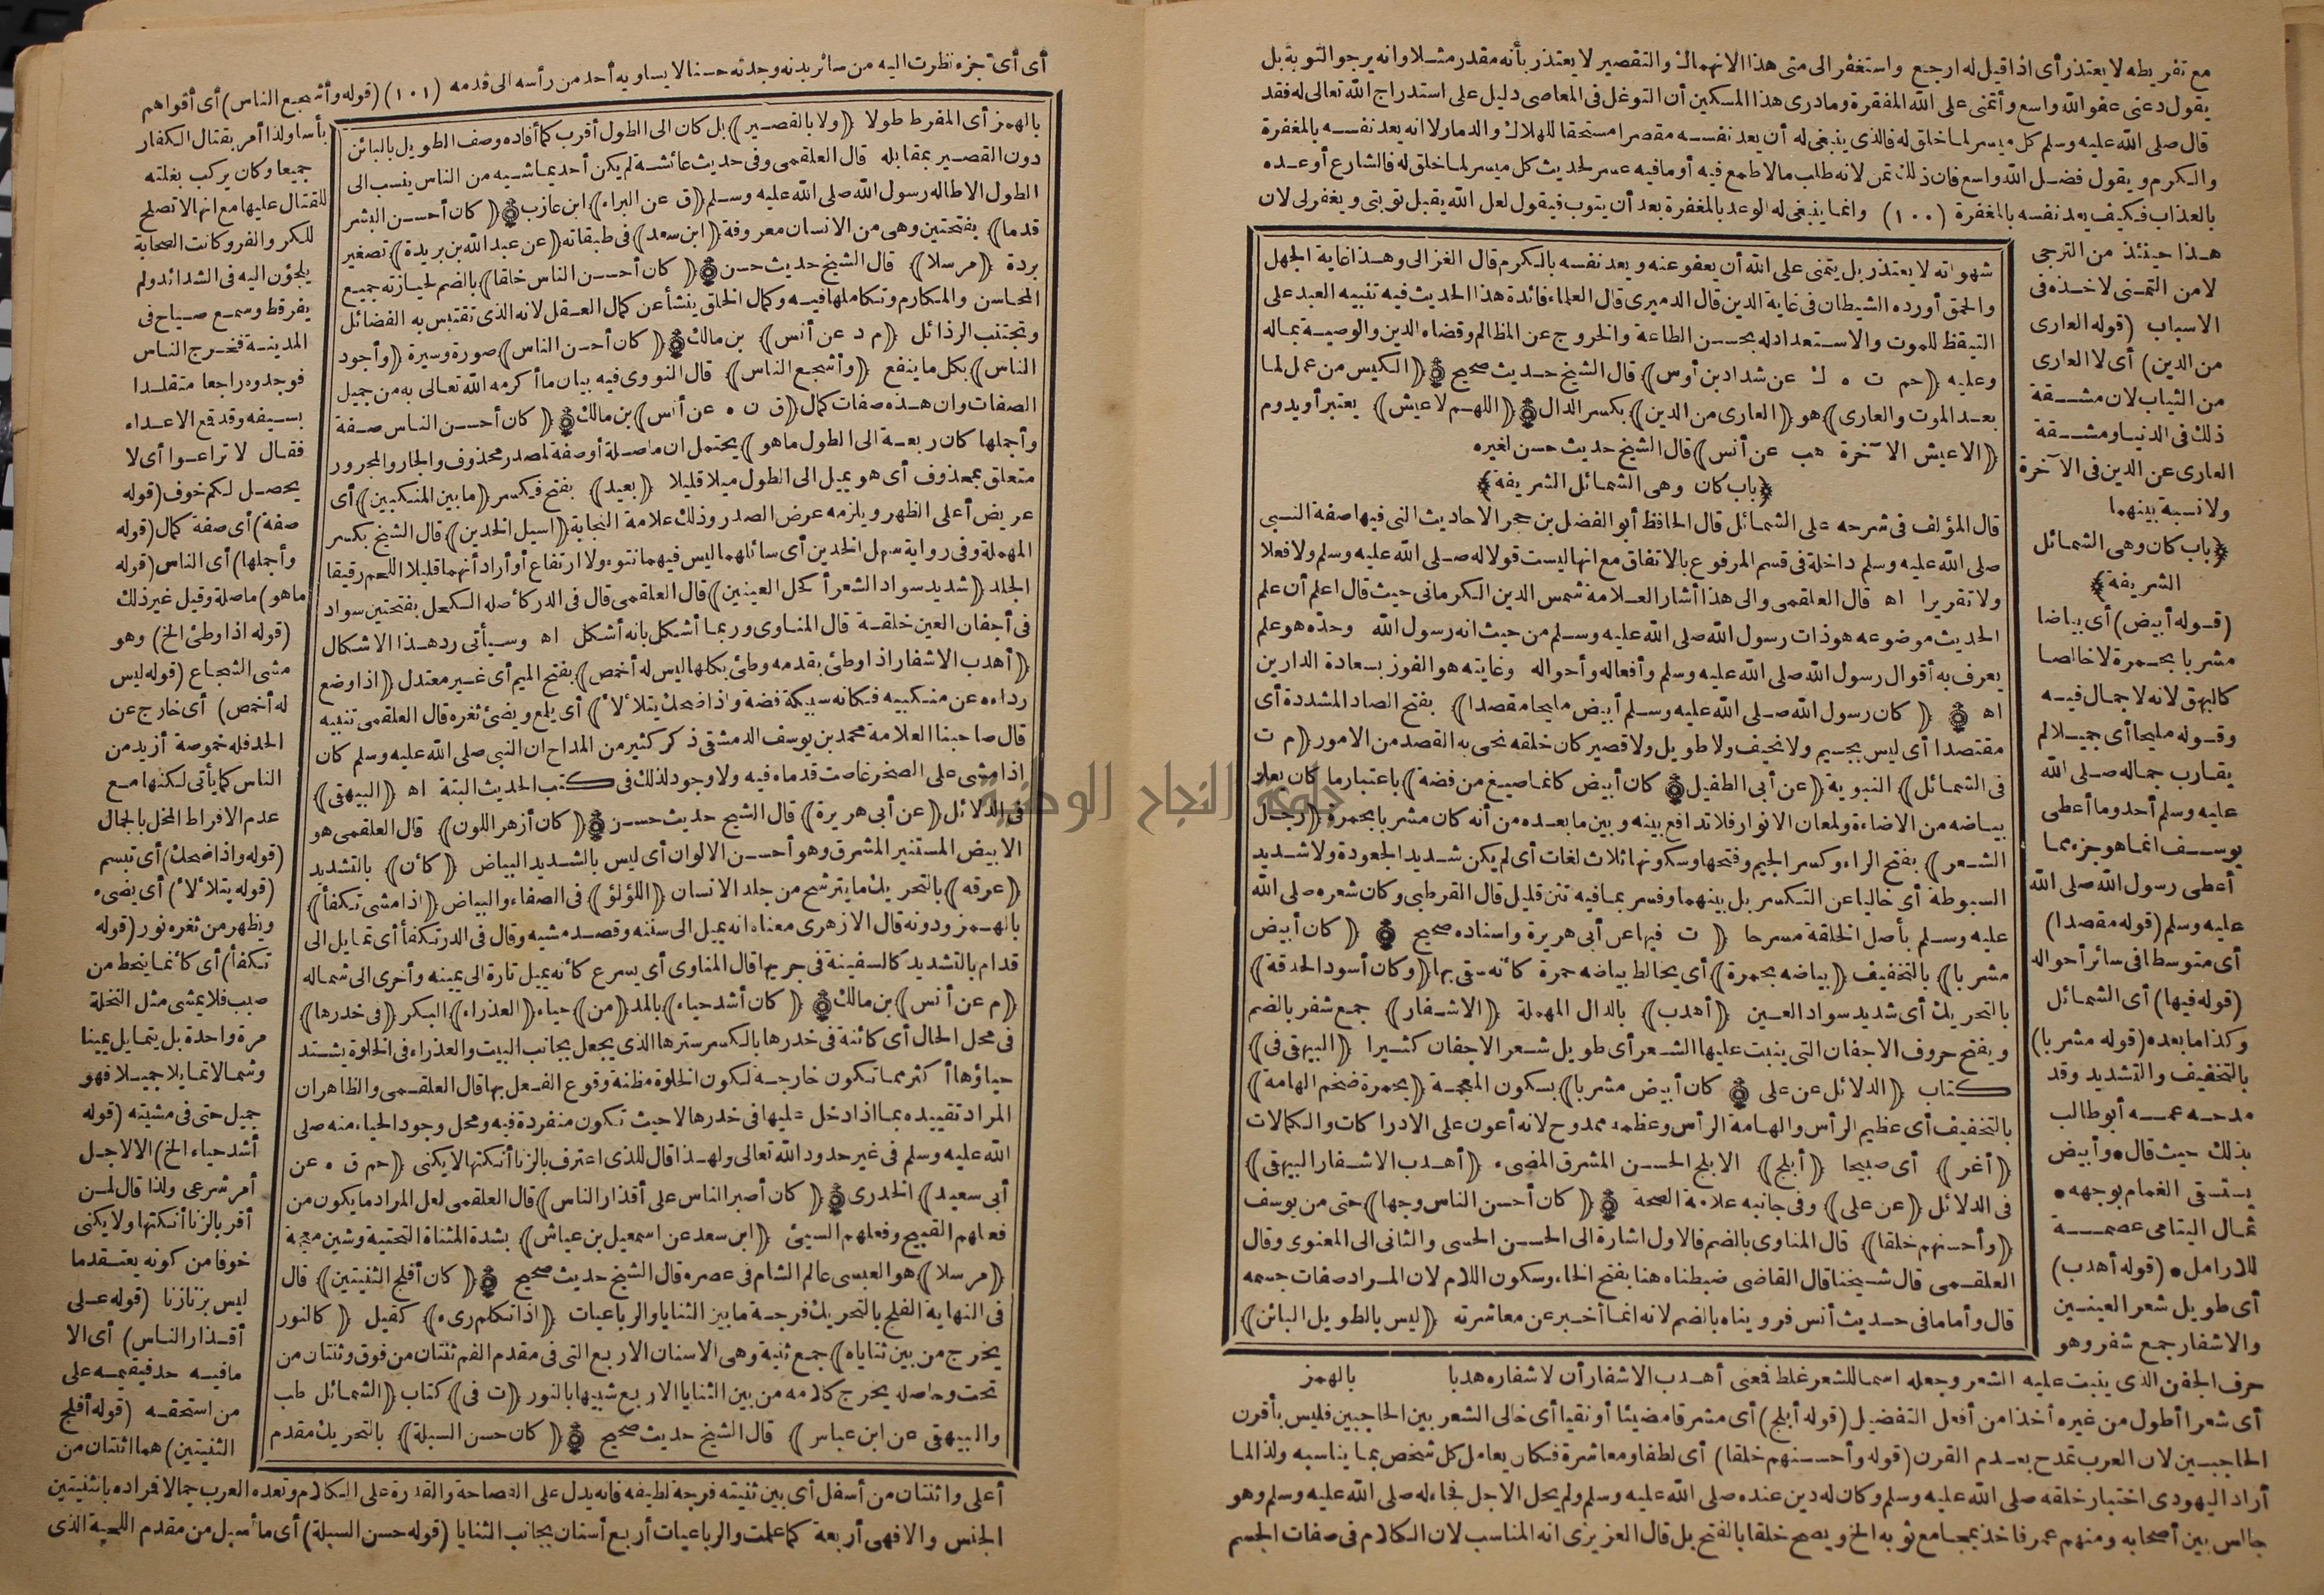 مع تفريطه لا يعتذر أى اذا قيل له ارجع واستغفر الى متى هذا الانهماك والتقصير لا يعتذر بأنه مقدر مثلا وانه يرجو التوبة بل
يقول دعنى عفو الله واسع وأتمنى على الله المغفرة وما درى هذا المسكين أن التوغل فى المعاصى دليل على استدراج الله تعالى له فقد
قال صلى الله عليه وسلم كل ميسر لما خلق له فالذى ينبغى له أن يعد نفسه مقصرا مستحقا للهلاك والدمار لا انه يعد نفسه بالمغفرة
والكرم ويقول فضل الله واسع فان ذلك تمن لانه طلب ما لا طمع فيه أو ما فيه عسر لحديث كل ميسر لما خلق له فالشارع أوعده
بالعذاب فكيف يعد نفسه بالمغفرة (١٠٠) وانما ينبغى له الوعد بالمغفرة بعد أن يتوب فيقول لعل الله يقبل توبتى ويغفر لى لان
هذا حينئذ من الترجى
لا من التمنى لاخذه فى
الاسباب (قوله العارى
من الدين) أى لا العارى
من الثياب لان مشقة
ذلك فى الدنيا ومشقة
العارى عن الدين فى الآخرة
ولا نسبة بينهما
﴿باب كان وهى الشمائل
الشريفة﴾
(قوله أبيض) أى بياضا
مشربا بحمرة لا خالصا
كالبهق لانه لا جمال فيه
وقوله مليحا أى جميلا لم
يقارب جماله صلى الله
عليه وسلم أحد وما أعطى
يوسف انما هو جزء مما
أعطى رسول الله صلى الله
عليه وسلم (قوله مقصدا)
أى متوسطا فى سائر أحواله
(قوله فيها) أى الشمائل
وكذا ما بعده (قوله مشربا)
بالتخفيف والتشديد وقد
مدحه عمه أبو طالب
بذلك حيث قال • وأبيض
يستسقى الغمام بوجهه •
ثمال اليتامى عصمة
للارامل • (قوله أهدب)
أى طويل شعر العينين
والاشفار جمع شفر وهو
شهواته لا يعتذر بل يتمنى على الله أن يعفو عنه ويعد نفسه بالكرم قال الغزالى وهذا غاية الجهل
والحمق أورده الشيطان فى غاية الدين قال الدميرى قال العلماء فائدة هذا الحديث فيه تنبيه العبد على
التيقظ للموت والاستعداد له بحسن الطاعة والخروج عن المظالم وقضاء الدين والوصية بماله
وعليه ﴿حم ت ه ك عن شداد بن أوس﴾ قال الشيخ حديث صحيح ﴿الكيس من عمل لما
بعد الموت والعارى﴾ هو ﴿العارى من الدين﴾ بكسر الدال ﴿اللهم لا عيش﴾ يعتبر أو يدوم
﴿الا عيش الآخرة هب عن أنس﴾ قال الشيخ حديث حسن لغيره
﴿باب كان وهى الشمائل الشريفة﴾
قال المؤلف فى شرحه على الشمائل قال الحافظ أبو الفضل بن حجر الاحاديث التى فيها صفة النبى
صلى الله عليه وسلم داخلة فى قسم المرفوع بالاتفاق مع انها ليست قولا له صلى الله عليه وسلم ولا فعلا
ولا تقريرا اه قال العلقمى والى هذا أشار العلامة شمس الدين الكرمانى حيث قال اعلم أن علم
الحديث موضوعه هو ذات رسول الله صلى الله عليه وسلم من حيث انه رسول الله وحده هو علم
يعرف به أقوال رسول الله صلى الله عليه وسلم وأفعاله وأحواله وغايته هو الفوز بسعادة الدارين
اه ﴿كان رسول الله صلى الله عليه وسلم أبيض مليحا مقصدا﴾ بفتح الصاد المشددة أى
مقتصدا أى ليس بجسيم ولا نحيف ولا طويل ولا قصير كان خلقه نحى به القصد من الامور ﴿م ت
فى الشمائل﴾ النبوية ﴿عن أبى الطفيل كان أبيض كانما صيغ من فضة﴾ باعتبار ما كان يعلو
بياضه من الاضاءة ولمعان الانوار فلا تدافع بينه وبين ما بعده من أنه كان مشربا بحمرة ﴿رجل
الشعر﴾ بفتح الراء وكسر الجيم وفتحها وسكونها ثلاث لغات أى لم يكن شديد الجعودة ولا شديد
السبوطة أى خاليا عن التكسر بل بينهما وفسر بما فيه تثن قليل قال القرطبى وكان شعره صلى الله
عليه وسلم بأصل الخلقة مسرحا ﴿ت فيها عن أبى هريرة واسناده صحيح ﴿كان أبيض
مشربا﴾ بالتخفيف ﴿بياضه بحمرة﴾ أى يخالط بياضه حمرة كأنه سقى بها ﴿وكان أسود الحدقة﴾
بالتحريك أى شديد سواد العين ﴿أهدب﴾ بالدال المهملة ﴿الاشفار﴾ جمع شفر بالضم
ويفتح حروف الاجفان التى ينبت عليها الشعر أى طويل شعر الاجفان كثيرا ﴿البيهقى فى﴾
كتاب ﴿الدلائل عن على كان أبيض مشربا﴾ بسكون المعجمة ﴿بحمرة ضخم الهامة﴾
بالتخفيف أى عظيم الرأس والهامة الرأس وعظمه ممدوح لانه أعون على الادراكات والكمالات
﴿أغر﴾ أى صبيحا ﴿أبلج﴾ الابلج الحسن المشرق المضىء ﴿أهدب الاشفار البيهقى﴾
فى الدلائل ﴿عن على﴾ وفى جانبه علامة الصحة ﴿كان أحسن الناس وجها﴾ حتى من يوسف
﴿وأحسنهم خلقا﴾ قال المناوى بالضم فالاول اشارة الى الحسن الحسى والثانى الى المعنوى وقال
العلقمى قال شيخنا قال القاضى ضبطناه هنا بفتح الخاء وسكون اللام لان المراد صفات جسمه
قال وأما ما فى حديث أنس فرويناه بالضم لانه انما أخبر عن معاشرته ﴿ليس بالطويل البائن﴾
حرف الجفن الذى ينبت عليه الشعر وجعله اسما للشعر غلط فعنى أهدب الاشفار أن لاشفاره هدبا بالهمز
أى شعرا أطول من غيره أخذا من أفعل التفضيل (قوله أبلج) أى مشرقا مضيئا أو نقيا أى خالى الشعر بين الحاجبين فليس بأقرن
الحاجبين لان العرب تمدح بعدم القرن (قوله وأحسنهم خلقا) أى لطفا ومعاشرة فكان يعامل كل شخص بما يناسبه ولذا لما
أراد اليهودى اختبار خلقه صلى الله عليه وسلم وكان له دين عنده صلى الله عليه وسلم ولم يحل الاجل فجاء له صلى الله عليه وسلم وهو
جالس بين أصحابه ومنهم عمر فاخذ بمجامع ثوبه الخ ويصح خلقا بالفتح بل قال العزيزى انه المناسب لان الكلام فى صفات الجسم
أى أى جزء نظرت اليه من سائر بدنه وجدته حسنا لا يساويه أحد من رأسه الى قدمه (١٠١) (قوله وأشجع الناس) أى أقواهم
بأسا ولذا أمر بقتال الكفار
جميعا وكان يركب بغلته
للقتال عليها مع انها لا تصلح
للكر والفر وكانت الصحابة
يلجؤن اليه فى الشدائد ولم
يفر قط وسمع صياح فى
المدينة فخرج الناس
فوجدوه راجعا متقلدا
بسيفه وقد قع الاعداء
فقال لا تراعوا أى لا
يحصل لكم خوف (قوله
صفة) أى صفة كمال (قوله
وأجملها) أى الناس (قوله
ما هو) ما صلة وقيل غير ذلك
(قوله اذا وطئ الخ) وهو
مشى الشجاع (قوله ليس
له أخمص) أى خارج عن
الحد فله خموصة أزيد من
الناس كما يأتى لكنها مع
عدم الافراط المخل بالجمال
(قوله واذا ضحك) أى تبسم
(قوله يتلألأ) أى يضىء
ويظهر من ثغره نور (قوله
تكفأ) أى كأنما ينحط من
صبب فلا يمشى مثل النخلة
مرة واحدة بل يتمايل يمينا
وشمالا تمايلا جميلا فهو
جميل حتى فى مشيته (قوله
أشد حياء الخ) الا لاجل
أمر شرعى ولذا قال لمن
أقر بالزنا أنكتها ولا يكنى
خوفا من كونه يعتقد ما
ليس بزنا زنا (قوله على
أقذار الناس) أى الا
ما فيه حد فيقيمه على
من استحقه (قوله أفلج
الثنيتين) هما اثنتان من
بالهمز أى المفرط طولا ﴿ولا بالقصير﴾ بل كان الى الطول أقرب كما أفاده وصف الطويل بالبائن
دون القصير بمقابله قال العلقمى وفى حديث عائشة لم يكن أحد يماشيه من الناس ينسب الى
الطول الا طاله رسول الله صلى الله عليه وسلم ﴿ق عن البراء﴾ ابن عازب ﴿كان أحسن البشر
قدما﴾ بفتحتين وهى من الانسان معروفة ﴿ابن سعد﴾ فى طبقاته ﴿عن عبد الله بن بريدة﴾ تصغير
بردة ﴿مرسلا﴾ قال الشيخ حديث حسن ﴿كان أحسن الناس خلقا﴾ بالضم لحيازته جميع
المحاسن والمكارم وتكاملها فيه وكمال الخلق ينشأ عن كمال العقل لانه الذى تقتبس به الفضائل
وتجتنب الرذائل ﴿م د عن أنس﴾ بن مالك ﴿كان أحسن الناس﴾ صورة وسيرة ﴿وأجود
الناس﴾ بكل ما ينفع ﴿وأشجع الناس﴾ قال النووى فيه بيان ما أكرمه الله تعالى به من جميل
الصفات وان هذه صفات كمال ﴿ق ت ه عن أنس﴾ بن مالك ﴿كان أحسن الناس صفة
وأجملها كان ربعة الى الطول ما هو﴾ يحتمل ان ما صلة أو صفة لمصدر محذوف والجار والمجرور
متعلق بمحذوف أى هو يميل الى الطول ميلا قليلا ﴿بعيد﴾ بفتح فكسر ﴿ما بين المنكبين﴾ أى
عريض أعلى الظهر ويلزمه عرض الصدر وذلك علامة النجابة ﴿اسيل الخدين﴾ قال الشيخ بكسر
المهملة وفى رواية سهل الخدين أى سائلهما ليس فيهما نتوء ولا ارتفاع أو أراد أنهما قليلا اللحم رقيقا
الجلد ﴿شديد سواد الشعر أكحل العينين﴾ قال العلقمى قال فى الدر كأصله الكحل بفتحتين سواد
فى أجفان العين خلقة قال المناوى وربما أشكل بانه أشكل اه وسيأتى رد هذا الاشكال
﴿أهدب الاشفار اذا وطئ بقدمه وطئ بكلها ليس له أخمص﴾ بفتح الميم أى غير معتدل ﴿اذا وضع
رداءه عن منكبيه فكأنه سبيكة فضة واذا ضحك يتلألأ﴾ أى يلمع ويضئ ثغره قال العلقمى تنبيه
قال صاحبنا العلامة محمد بن يوسف الدمشقى ذكر كثير من المداح ان النبى صلى الله عليه وسلم كان
اذا مشى على الصخر غاصت قدماه فيه ولا وجود لذلك فى كتب الحديث البتة اه ﴿البيهقى﴾
فى الدلائل ﴿عن أبى هريرة﴾ قال الشيخ حديث حسن ﴿كان أزهر اللون﴾ قال العلقمى هو
الابيض المستنير المشرق وهو أحسن الالوان أى ليس بالشديد البياض ﴿كأن﴾ بالتشديد
﴿عرقه﴾ بالتحريك ما يترشح من جلد الانسان ﴿اللؤلؤ﴾ فى الصفاء والبياض ﴿اذا مشى تكفأ﴾
بالهمز ودونه قال الازهرى معناه انه يميل الى سننه وقصد مشيه وقال فى الدر تكفأ أى تمايل الى
قدام بالتشديد كالسفينة فى جريها قال المناوى أى يسرع كأنه يميل تارة الى يمينه وأخرى الى شماله
﴿م عن أنس﴾ بن مالك ﴿كان أشد حياء﴾ بالمد ﴿من﴾ حياء ﴿العذراء﴾ البكر ﴿فى خدرها﴾
فى محل الحال أى كائنة فى خدرها بالكسر سترها الذى يجعل بجانب البيت والعذراء فى الخلوة يشتد
حياؤها أكثر مما تكون خارجة لكون الخلوة مظنة وقوع الفعل بها قال العلقمى والظاهر ان
المراد تقييده بما اذا دخل عليها فى خدرها لا حيث تكون منفردة فيه ومحل وجود الحياء منه صلى
الله عليه وسلم فى غير حدود الله تعالى ولهذا قال للذى اعترف بالزنا أنكتها لا يكنى ﴿حم ق ه عن
أبى سعيد﴾ الخدرى ﴿كان أصبر الناس على أقذار الناس﴾ قال العلقمى لعل المراد ما يكون من
فعلهم القبيح وفعلهم السيئ ﴿ابن سعد عن اسمعيل بن عياش﴾ بشدة المثناة التحتية وشين معجمة
﴿مرسلا﴾ هو العبسى عالم الشام فى عصره قال الشيخ حديث صحيح ﴿كان أفلج الثنيتين﴾ قال
فى النهاية الفلج بالتحريك فرجة ما بين الثنايا والرباعيات ﴿اذا تكلم رىء﴾ كقيل ﴿كالنور
يخرج من بين ثناياه﴾ جمع ثنية وهى الاسنان الاربع التى فى مقدم الفم ثنتان من فوق وثنتان من
تحت وحاصله يخرج كلامه من بين الثنايا الاربع شبيها بالنور ﴿ت فى﴾ كتاب ﴿الشمائل طب
والبيهقى عن ابن عباس﴾ قال الشيخ حديث صحيح ﴿كان حسن السبلة﴾ بالتحريك مقدم
أعلى واثنتان من أسفل أى بين ثنيته فرجة لطيفة فانه يدل على الفصاحة والقدرة على الكلام وتعده العرب جمالا فراده بالثنيتين
الجنس والا فهى أربعة كما علمت والرباعيات أربع أسنان بجانب الثنايا (قوله حسن السبلة) أى ما أسبل من مقدم اللحية الذى
جامعة النجاح الوطنية